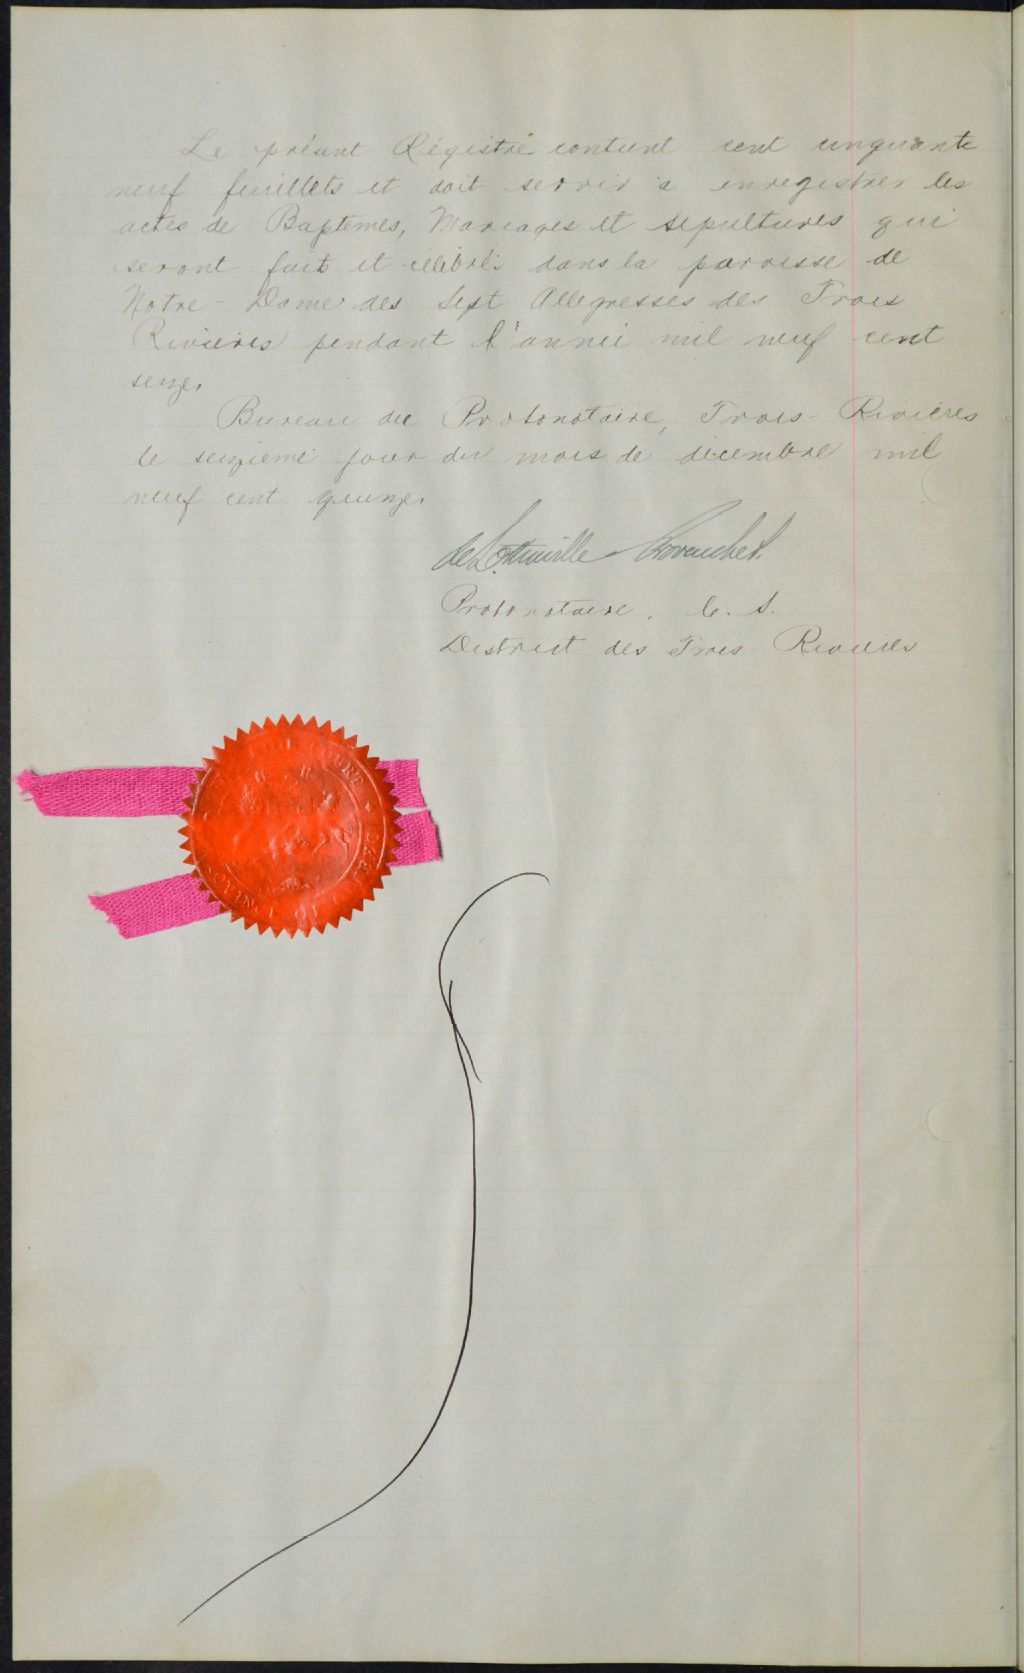 Le présent Régistre contient cent cinquante
neuf feuillets et doit servir à enregistrer les
actes de Baptemes, Mariages et sepultures qui
seront fait et célébrés dans la paroisse de
Notre-Dame des Sept Allegresses des Trois
Rivières pendant l'année mil neuf cent
seize.
Bureau du Protonotaire, Trois-Rivières
le seizième jour du mois de décembre mil
neuf cent quinze.
de Lottinville
Protonotaire. C. S.
District des Trois Rivières